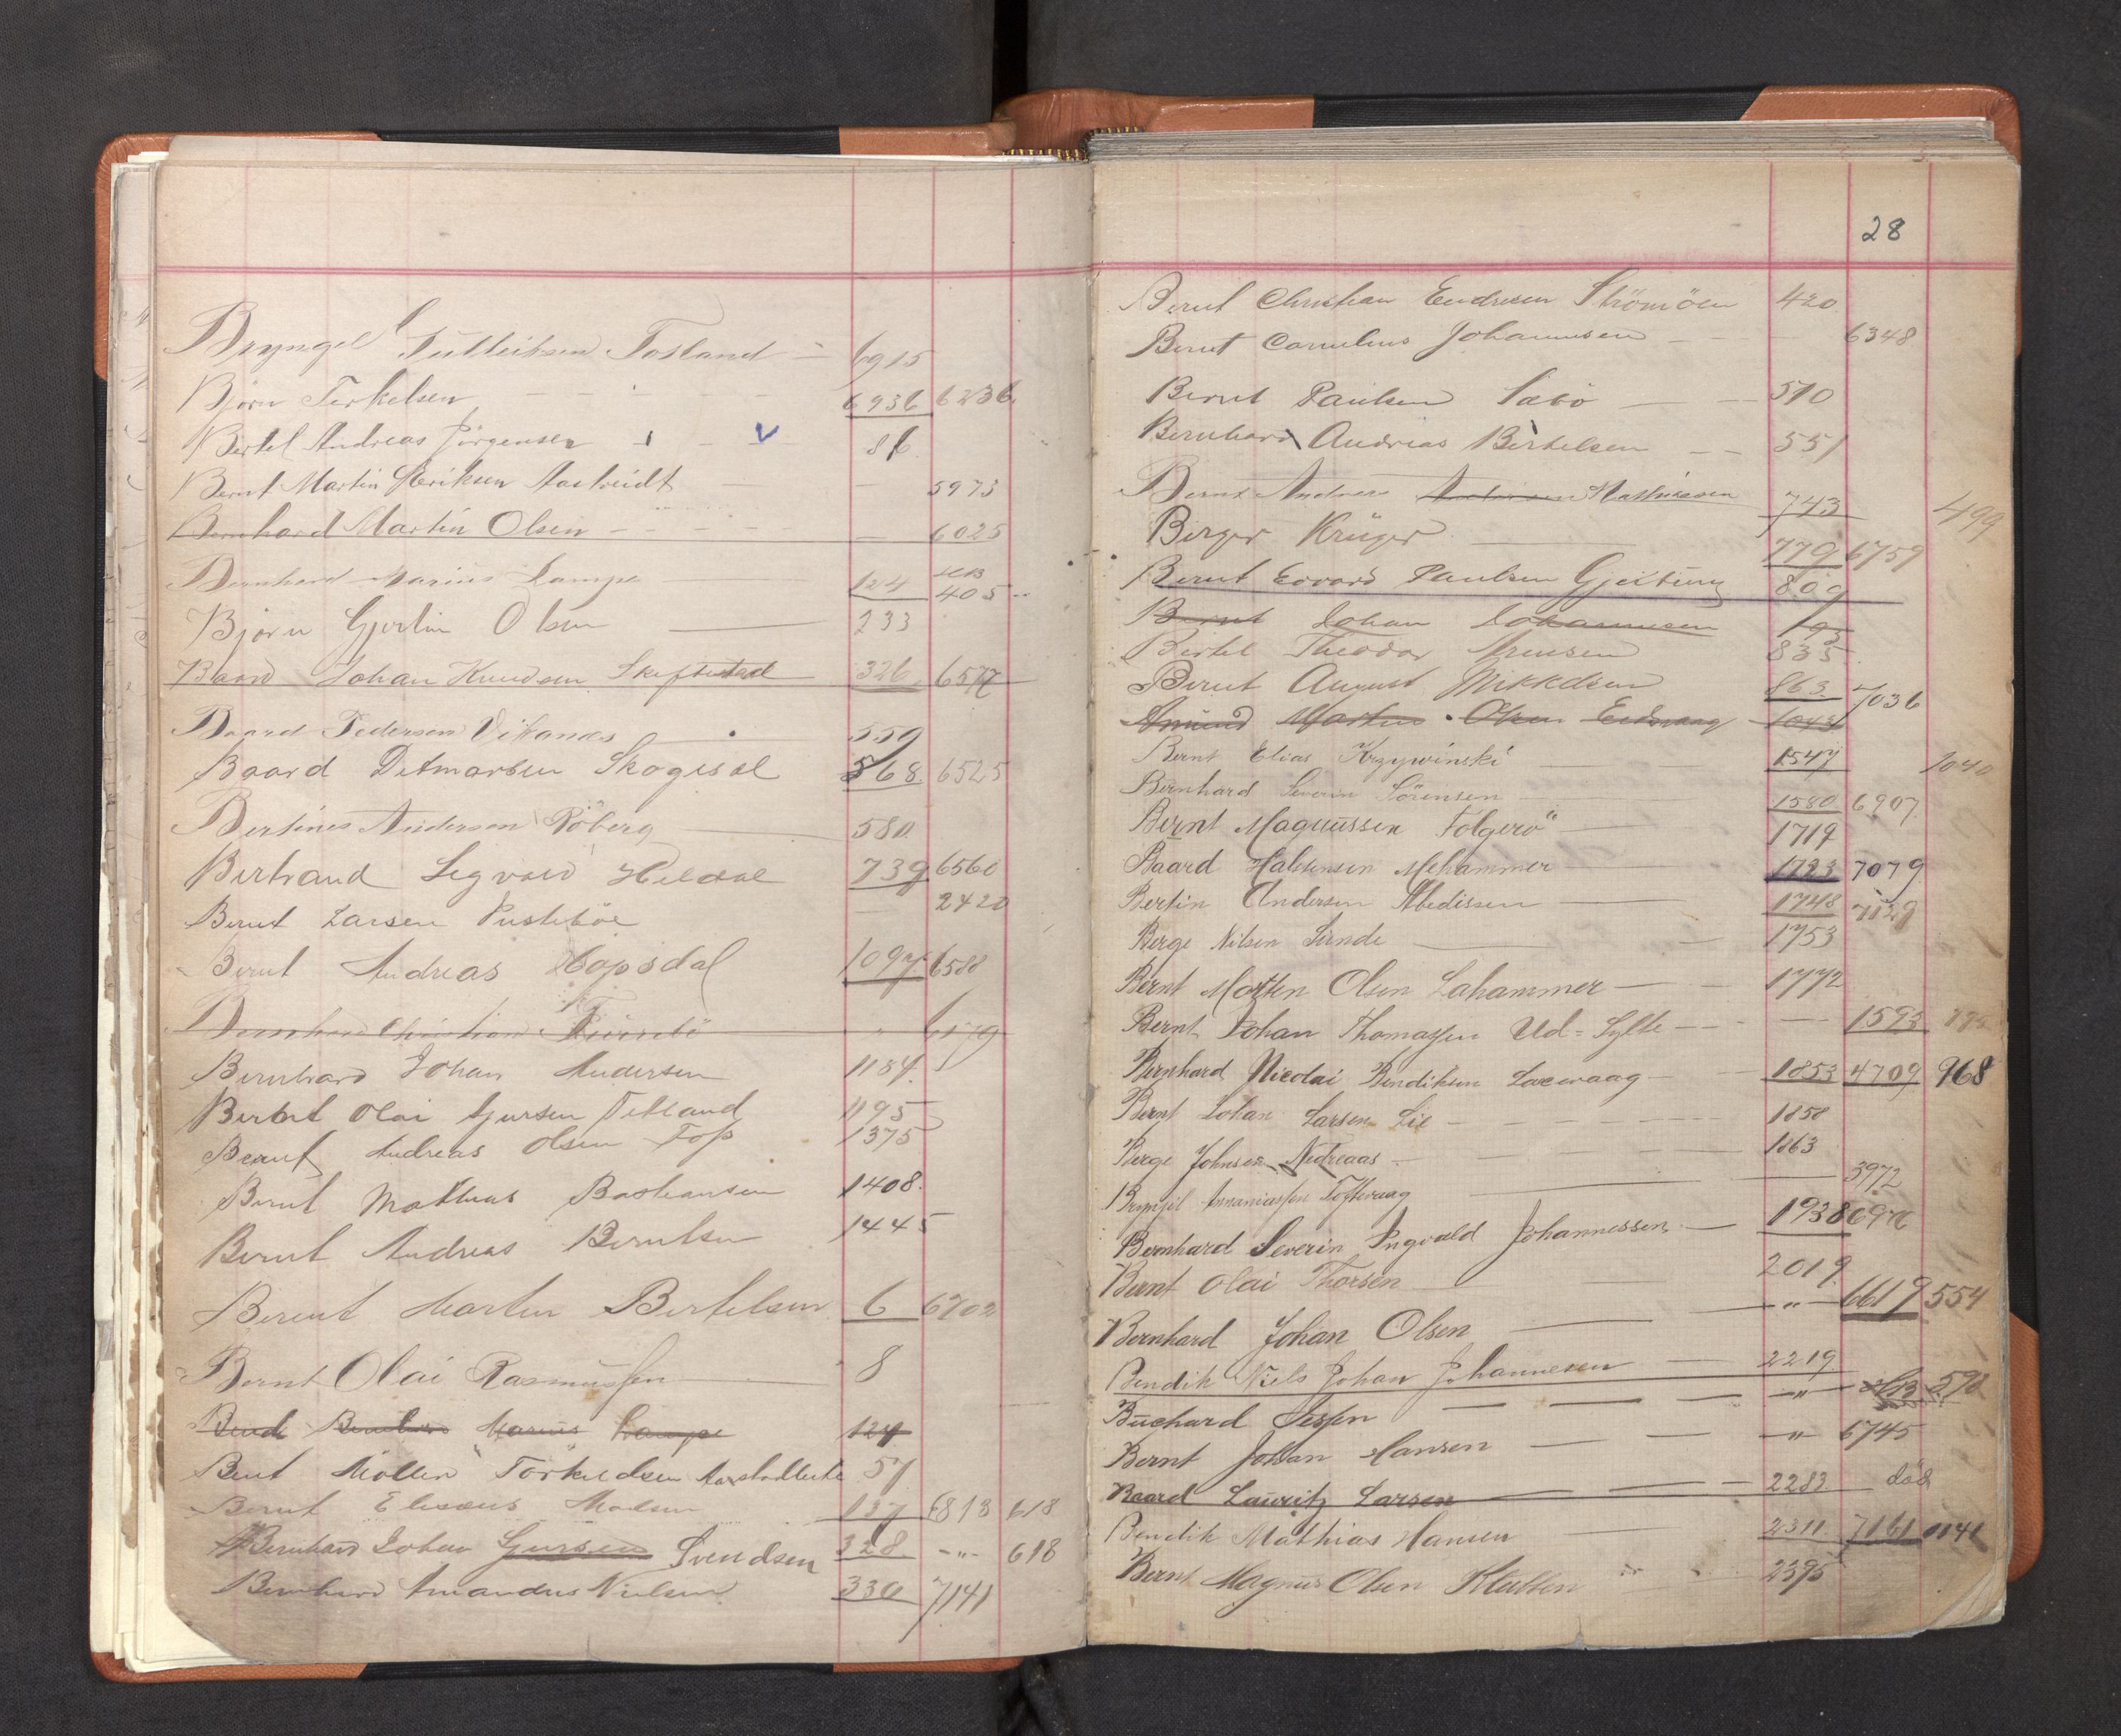 Bryngel Tutleiksen Tosland 6915
Bjørn Terkelsen 6936 6236
Bertel Andreas Jörgensen 86
Bernt Martin Heriksen 5973
Bernhard Martin Olsen 6025
Bernhard Marius Lampe 124 405
Bjørn Gjertin Olsen 233
Baard Johan Knudsen 326 6577
Baard Pedersen Vikanæs 559
Baard Ditmarsen Skogisal 568 6525
Bertines Andersen Röberg 580
Bertrand Sigvard Heldal 739 6560
Bernt Larsen 2420
Bernt Andreas Hopsdal 1097 6588
Bernhard Christian
Bernhard Johan Andersen 1184
Olai Gjursen Tetland 1195
Bernt Andreas Olsen 1375
Bernt Mathias Bastiansen 1408
Bernt Andreas Berntsen 1445
Berent Martin Bertelsen 6 6702
Bernt Olai Rasmussen 8
Marius Lampe 124
Bent Möller Torkildsen 57
Bernt Elisæus Madsen 137 6813 618
Bernhard Johan Gjursen Svendsen 328 -"- 618
Bernhard Amandus Nielsen 330 7141
28
Bernt Christian Endresen Strömöen 420
Bernt Cornelius Johannesen 6348
Bernt Paulsen Sæbö 510
Bernhard Andreas Bertelsen 551
Bernt Andreas Andersen Mathiesen 743 499
Berger Krüger 779 6759
Bernt Edvard Paulsen Gjeitung 809
Bernt Johan Johannesen
Bertel Theodor Arensen 835
Bernt August Mikkelsen 863 7036
Amund Martin Olsen Eidsvaag 1043
Bernt Elias Krzywinski 1547 1040
Bernhard Severin Sörensen 1580 6907
Bernt Magnussen Folgerö 1719
Baard Halstensen Mehammer 1723 7079
Bertin Andersen Abedissen 1748 7129
Berge Nilsen Sunde 1753
Bernt Morten Olsen Lahammer 1772
Bernt Johan Thomassen Ud=Sylte 1593
Bernhard Nicolai Bendiksen Laxevaag 1853 4709 968
Bernt Johan Larsen Lie 1858
Berge Johnsen Nedreaas 1863
Brynjel Annaniassen Toftevaag 3972
Bernhard Severin Ingvald Johannessen 1938
Bernt Olai Thorsen 2019
Bernhard Johan Olsen -"- 6619 554
Bendik Niels Johan Johannesen 2219
Buchard Jessen -"- 598
Bernt Johan Hansen -"- 6745
Baard Lauritz Larsen 2283 död
Bendik Mathias Hansen 2311 7161 1142
Bernt Magnus Olsen Klubben 2395